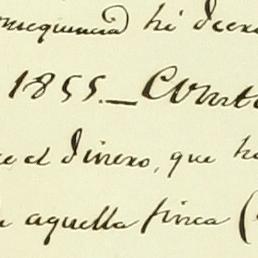 onsequencia hé dicen
1855._Const
e el dinero, que h
aquella finca (